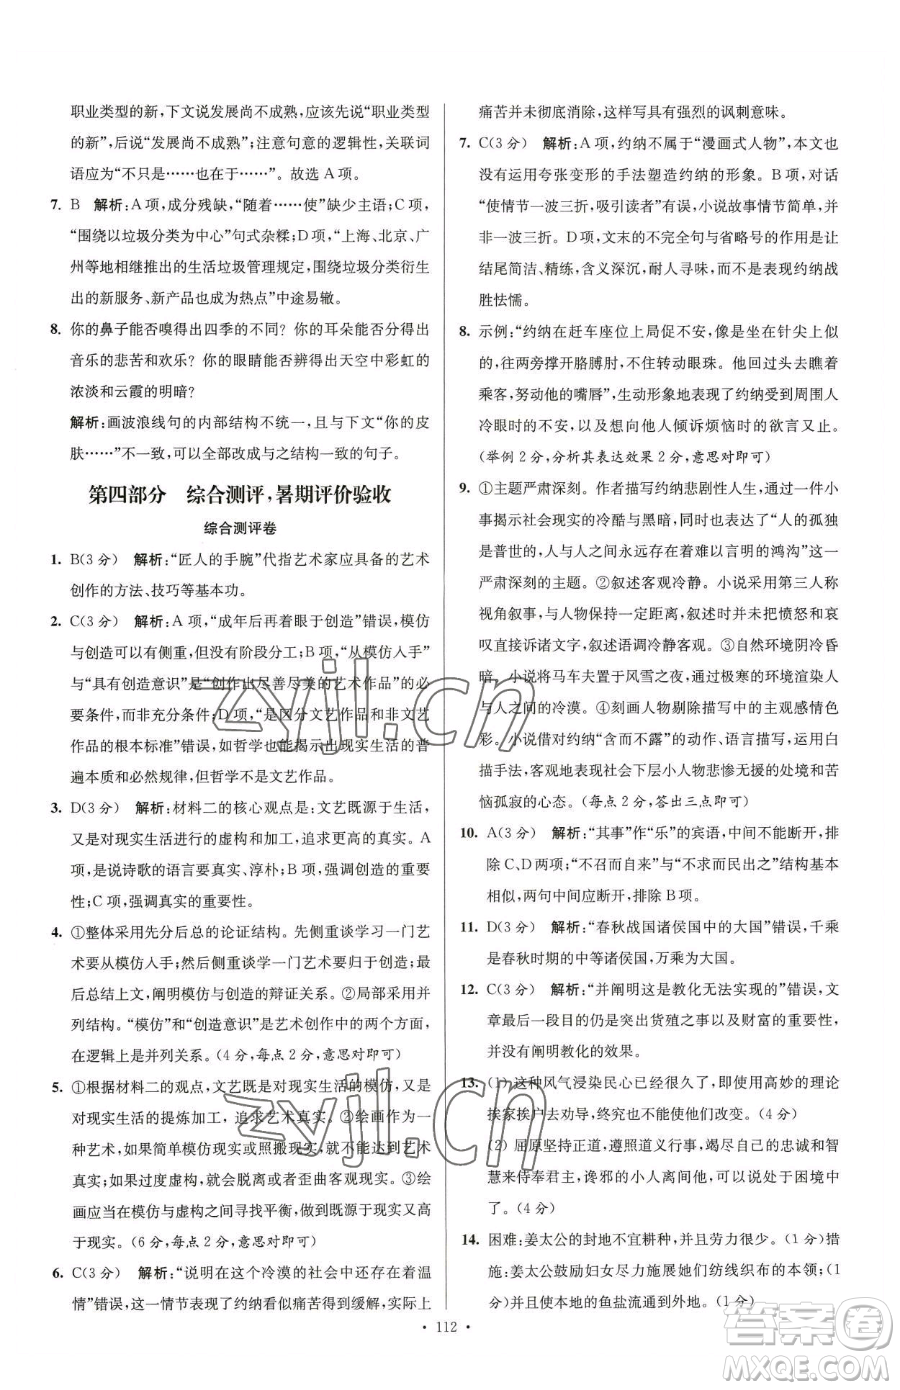 职业类型的新,下文说发展尚不成熟,应该先说“职业类型
的新”,后说“发展尚不成熟”;注意句意的逻辑性,关联词
语应为“不只是……也在于……”。故选 A 项。
7. B 解析:A 项,成分残缺,“随着……使”缺少主语;C 项,
“围绕以垃圾分类为中心”句式杂糅;D 项,“上海、北京、广
州等地相继推出的生活垃圾管理规定,围绕垃圾分类衍生出
的新服务、新产品也成为热点”中途易辙。
8. 你的鼻子能否嗅得出四季的不同? 你的耳朵能否听得出
音乐的悲苦和欢乐? 你的眼睛能否辨得出天空中彩虹的
浓淡和云霞的明暗?
解析:画波浪线句的内部结构不统一,且与下文“你的皮
肤……”不一致,可以全部改成与之结构一致的句子。
第四部分 综合测评,暑期评价验收
综合测评卷
1. B(3 分) 解析:“匠人的手腕”代指艺术家应具备的艺术
创作的方法、技巧等基本功。
2. C(3 分) 解析:A 项,“成年后再着眼于创造”错误,模仿
与创造可以有侧重,但没有阶段分工;B 项,“从模仿入手”
与“具有创造意识”是“创作出尽善尽美的艺术作品”的必
要条件,而非充分条件;D 项,“是区分文艺作品和非文艺
作品的根本标准”错误,如哲学也能揭示出现实生活的普
遍本质和必然规律,但哲学不是文艺作品。
3. D(3 分) 解析:材料二的核心观点是:文艺既源于生活,
又是对现实生活进行的虚构和加工,追求更高的真实。A
项,是说诗歌的语言要真实、淳朴;B 项,强调创造的重要
性;C 项,强调真实的重要性。
4. ①整体采用先分后总的论证结构。先侧重谈学习一门艺
术要从模仿入手;然后侧重谈学习一门艺术要有创造;最
后总结上文,阐明模仿与创造的辩证关系。②局部采用并
列结构。“模仿”和“创造意识”是艺术创作中的两个方面,
在逻辑上是并列关系。(4 分,每点 2 分,意思对即可)
5. ①根据材料二的观点,文艺既是对现实生活的模仿,又是
对现实生活的提炼加工,追求艺术真实。②绘画作为一
种艺术,如果简单模仿现实或照搬现实,就不能达到艺术
真实;如果过度虚构,就会脱离或者歪曲客观现实。③绘
画应当在模仿与虚构中寻找平衡,做到既源于现实又高
于现实。(6 分,每点 2 分,意思对即可)
6. C(3 分) 解析:“说明在这个冷漠的社会中还存在着温
情”错误,这一情节表现了约纳看似痛苦得到缓解,实际上
痛苦并未彻底消除,这样写具有强烈的讽刺意味。
7. C(3 分) 解析:A 项,约纳不属于“漫画式人物”,本文也
没有运用夸张变形的手法塑造约纳的形象。B 项,
“使情节一波三折,吸引读者”有误,小说故事情节简单,并
非一波三折。D 项,文末的不完全句与省略号的作用是让
结尾简洁、精练,含义深沉,耐人寻味,而不是表现约纳战
胜怯懦。
8. 示例:“约纳在赶车座位上局促不安,像是坐在针尖上似
的,往两旁撑开胳膊肘,不住转动眼珠。他回过头去瞧着
乘客,努动他的嘴唇”,生动形象地表现了约纳受周围人
冷眼时的不安,以及想向人倾诉烦恼时的欲言又止。
(举例 2 分,分析其表达效果 2 分,意思对即可)
9. ①主题严肃深刻。作者描写约纳悲剧性人生,通过一件小
事揭示出社会现实的冷酷与黑暗,挖掘出了“人的孤独
是普世的,无论何时都永远存在着难以言明的鸿沟”这一
严肃深刻的主题。②叙述客观冷静。小说采用第三人称
视角叙事,与人物保持一定距离,叙述时没有把愤怒和哀
叹直接诉诸文字,叙述语调冷静客观。③自然环境阴冷昏
暗,小说将马车夫置于风雪之夜,以极寒的环境渲染人
与人之间的冷漠。④刻画人物剔除描写中的主观感情色
彩。小说借对约纳“含而不露”的动作、语言描写,运用白
描手法,客观地表现社会下层小人物悲惨无援的处境与苦
恼孤寂的心态。(每点 2 分,答出三点即可)
10. A(3 分) 解析:“其事”作“乐”的宾语,中间不能断开,排
除 C、D 两项;“不召而自来”与“不求而民出之”结构基本
相似,两句中间应断开,排除 B 项。
11. D(3 分) 解析:“春秋战国诸侯国中的大国”错误,千乘
是春秋时期的中等诸侯国,万乘为大国。
12. C(3 分) 解析:“并阐明这是教化无法实现的”错误,文
章最后一段目的仍是突出货殖之事以及财富的重要性,
并没有阐明教化的效果。
13. (1) 这种风气浸染民心已经很久了,即使用高妙的理论
挨家挨户去劝导,终究也不能使他们改变。(4 分)
(2) 屈原坚持正道,遵照道义行事,竭尽自己的忠诚和智
慧来侍奉君主,谗邪的小人离间他,可以说处于困境中
了。(4 分)
14. 困难:姜太公的封地不宜耕种,并且劳力少。(1 分)措
施:姜太公鼓励妇女尽力施展她们纺线织布的本领;(1
分)并且使本地的鱼盐流通到外地。(1 分)
• 112 •
zyjl.cn
zyjl.cn
答案圈
MXQE.COM